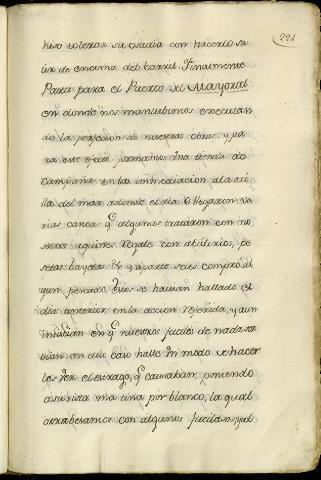 221
hiso tolerar su osadia con hacerlo sa
lir de encima del barril. Finalmente
Parti para el Puerto del Mayoral
en donde nos mantubimos executan
do la perfeccion de nuestras obras. y pa
ra este efecto formamos una tienda de
campaña en las inmediacion a la ori
lla del mar, adonde el dia 6 llegaron va
rias canoas q.e algunas trataron con no
sotros aquienes regale con abalorios, pe
setas bayeta &.a y aparte seles compró al
gun pescado. Estos se havian hallado el
dia anterior en la accion referida, y aun
insistian en q.e nuestros fusiles de nada ser
vian, en cuio caso halle un modo de hacer
les ver el estrago, q.e causaban, poniendo
a su vista una tina por blanco, la qual
atrabesamos con algunos fusilasos, que